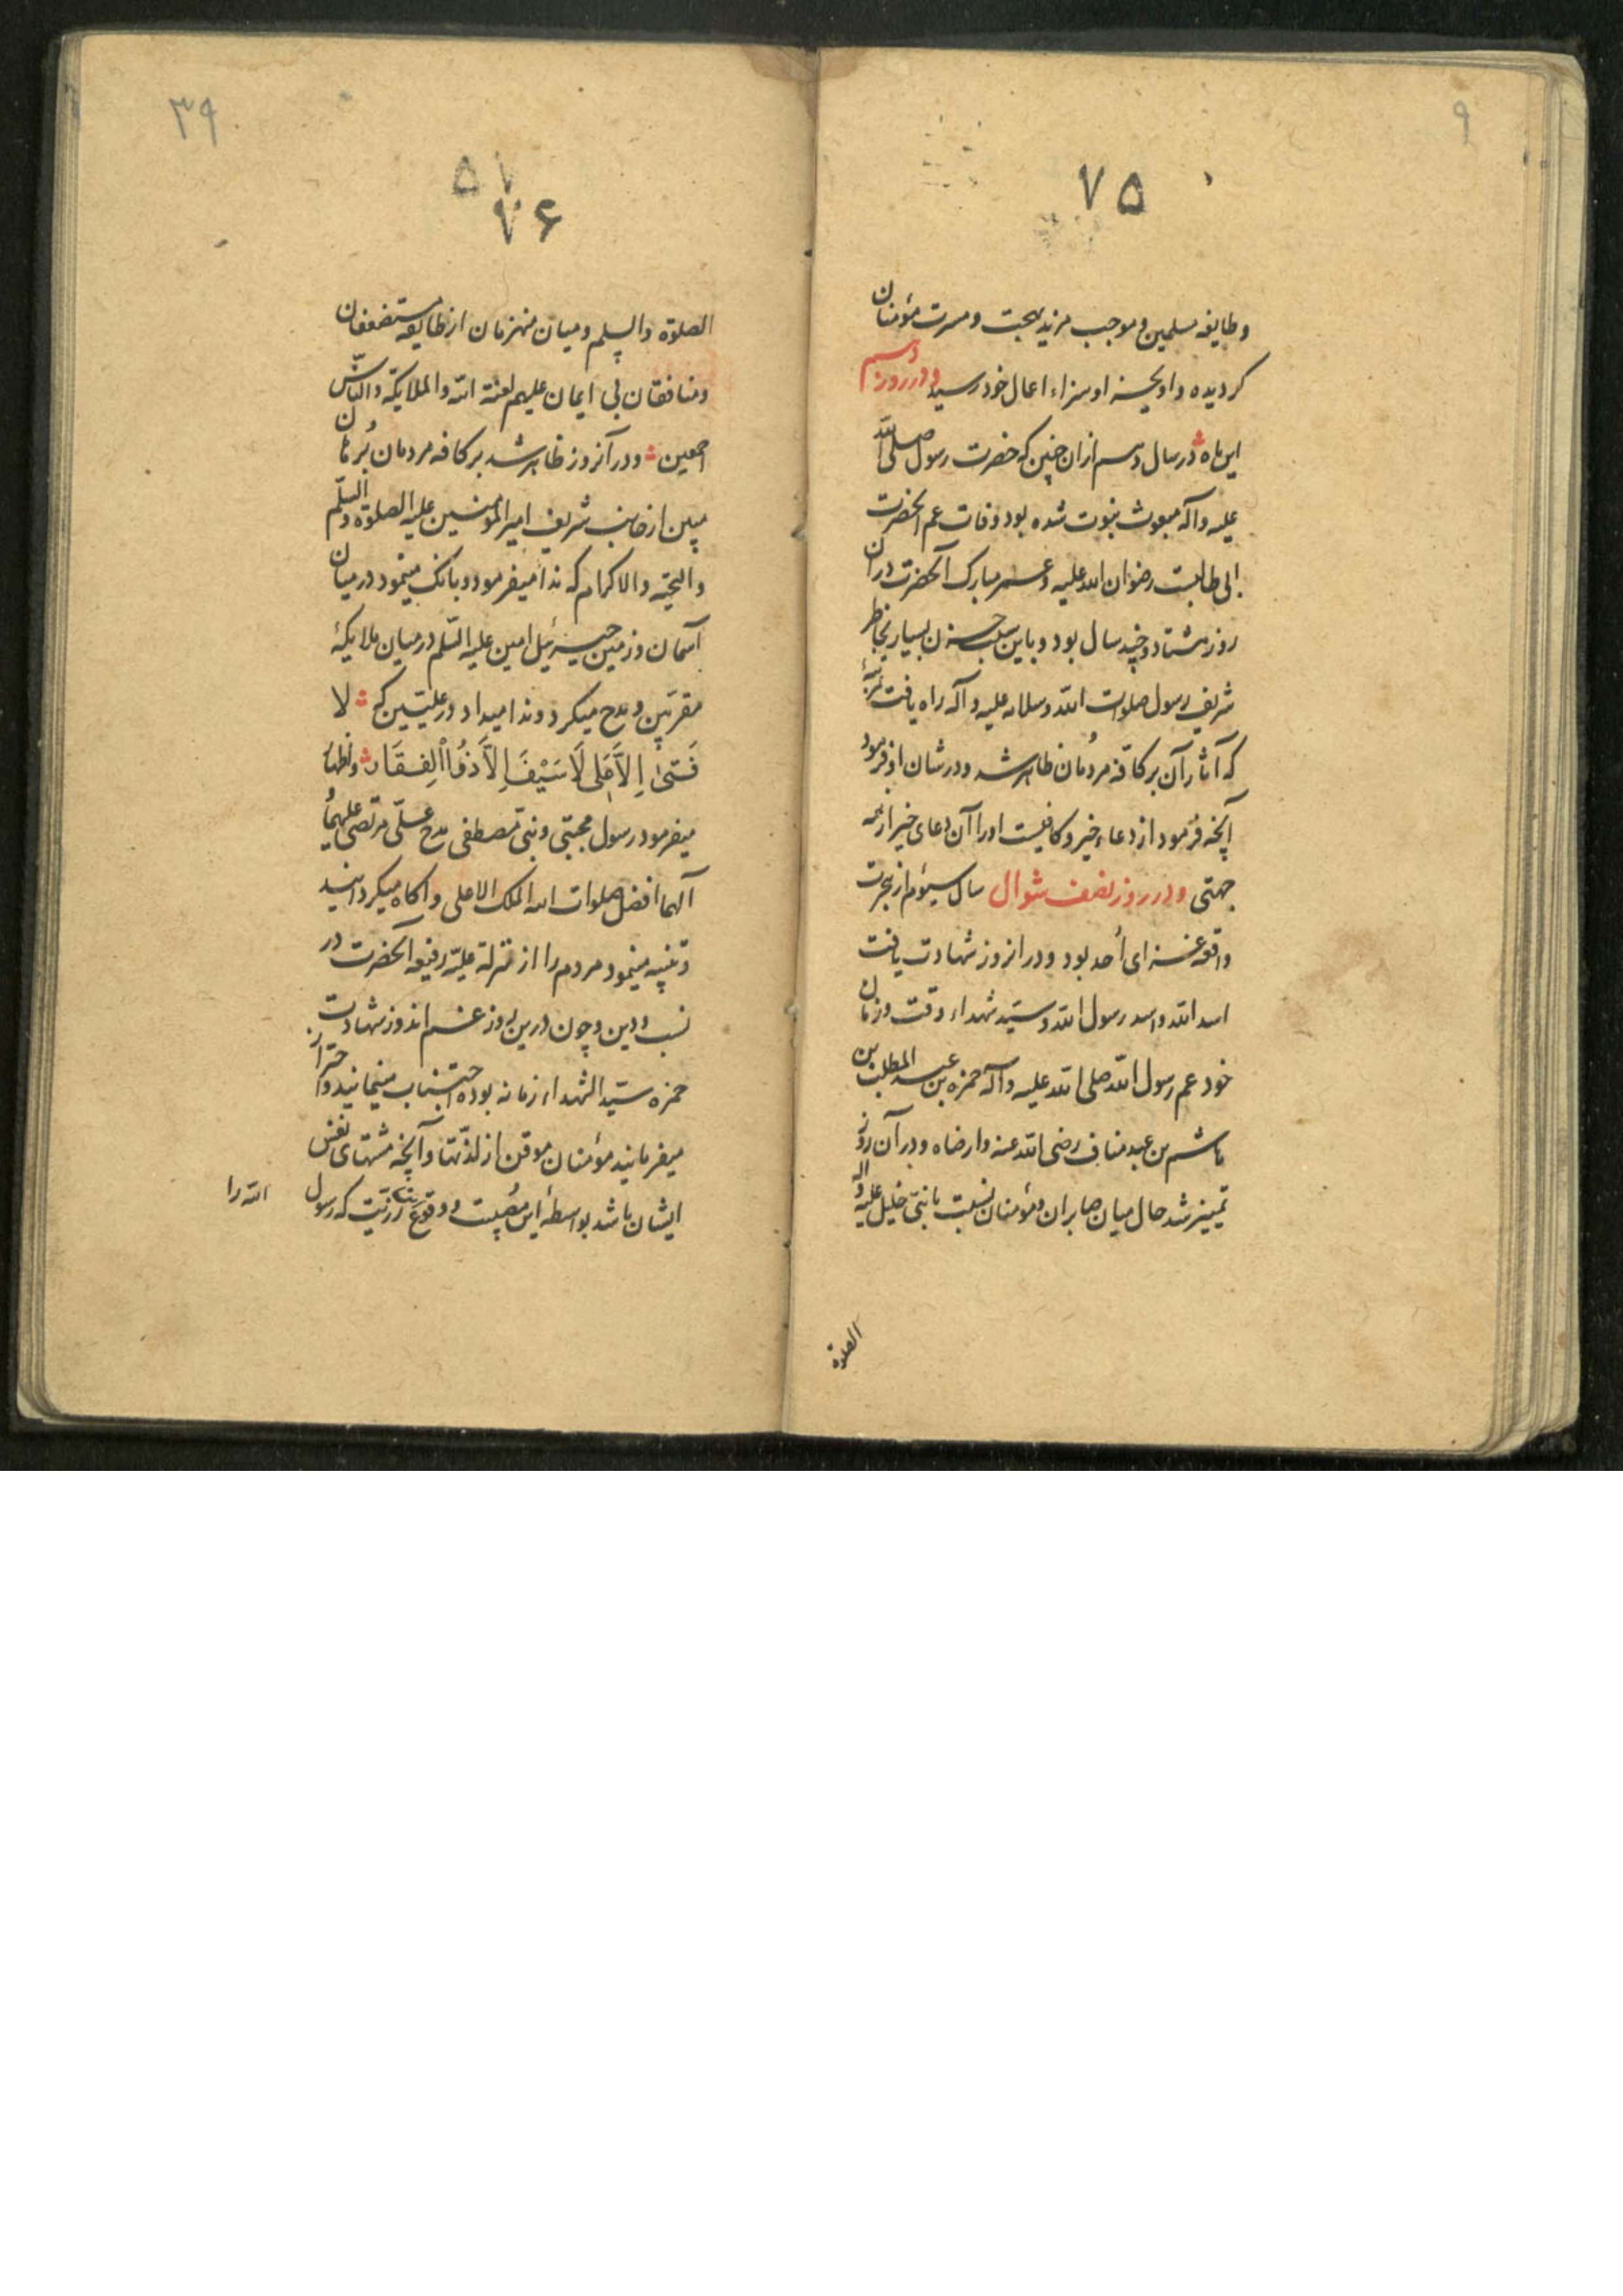 ۹
۷۵
وطایفه مسلمین و موجب مزید بهجت و مسرت مؤمنان
کردیده و او بجسته او سزاء اعمال خود رسید و در روز دهم
این ماه در سال دهم ازان حین که حضرت رسول صلی الله
علیه وآله مبعوث بنبوت شده بود وفات عم آنحضرت
ابی طالبست رضوان الله علیه وعمر مبارک آنحضرت دران
روز هشتاد و چند سال بود و باین سبب حزن بسیار بخاطر
شریف رسول صلوات الله وسلامه علیه وآله راه یافت
که آثار آن بر کافه مردمان ظاهر شد و درشان او فرمود
آنچه فرمود از دعاء خیر و کافیست اورا آن دعای خیر از همه
جهتی و در روز نصف شوال سال سیؤم از هجرت
واقعه غزای أحد بود و درانروز شهادت یافت
اسد الله واسد رسول الله وسید شهداء وقت وزمان
خود عم رسول الله صلی الله علیه وآله حمزه بن عبد المطلب بن
هاشم بن عبد مناف رضی الله عنه وارضاه و در آن روز
تمییز شد حال میان صابران و مؤمنان نسبت بانبی خلیل علیه وآله
الصلوة
۳۹
۵۷
۷۶
الصلوة والسلم ومیان منهزمان از طایفه مستضعفان
ومنافقان بی ایمان علیهم لعنة الله والملایکة والناس
اجمعین و در آنروز ظاهر شد بر کافه مردمان بُرهان
مبین از جانب شریف امیر المؤمنین علیه الصلوة والسلم
والتحیة والاکرام که ندا میفرمود و بانک مینمود در میان
آسمان وزمین جبرئیل امین علیه السلم در میان ملایکهٔ
مقربین و مدح میکرد و ندا میداد در علیّین که لا
فَتىٰ اِلاَّ عَلى لَا سَیْفَ اِلاَّ ذوُالْفِقَار واظهار
میفرمود رسول مجتبی ونبی مصطفی مدح علی مرتضی علیهما و
آلهما افضل صلوات الله الملک الاعلی و آکاه میکردانید
وتنبیه مینمود مردم را از منزلة علیّه رفیعه آنحضرت در
نسب و دین و چون درین روز غم اندوز شهادت
حمزه سید الشهداء زمانه بوده اجتناب مینمایند و احتراز
میفرمایند مؤمنان موقن از لذتها و آنچه مشتهای نفس
ایشان باشد بواسطهٔ این مصیبت و وقوع رزیت که رسول
الله را